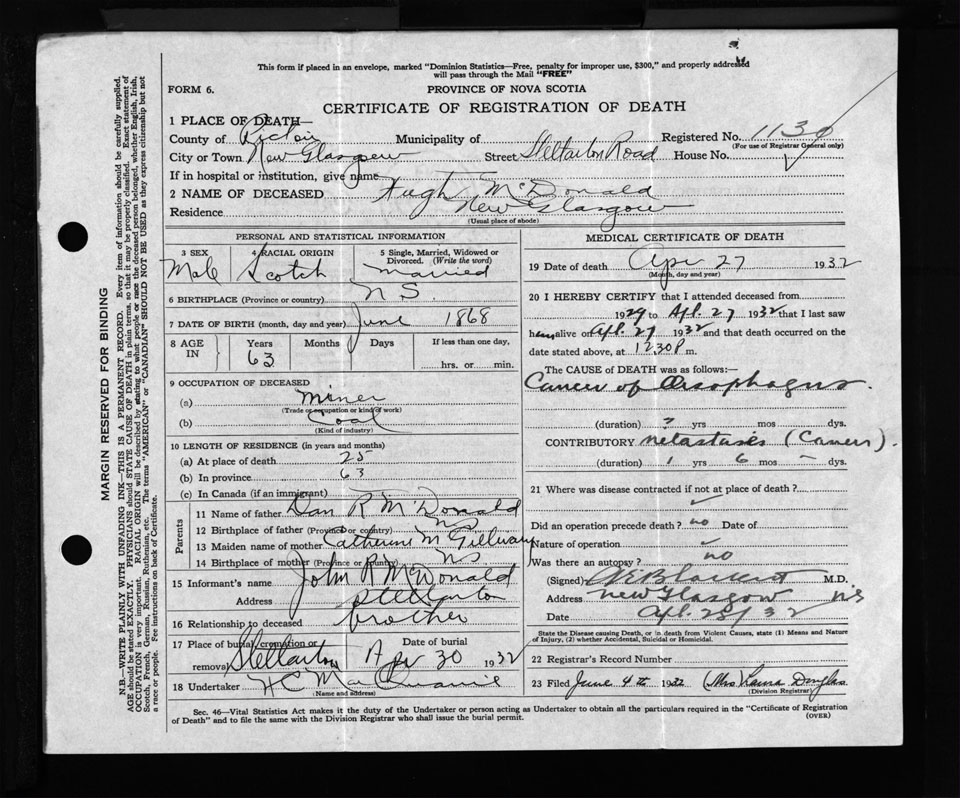 This form if placed in an envelope, marked "Dominion Statistics—Free, penalty for improper use, $300," and properly addressed
will pass through the Mail "FREE"
FORM 6. PROVINCE OF NOVA SCOTIA
CERTIFICATE OF REGISTRATION OF DEATH
1 PLACE OF DEATH—
County of Pictou Municipality of Registered No. 1130
(For use of Registrar General only)
City or Town New Glasgow Street Stellarton Road House No.
If in hospital or institution, give name
2 NAME OF DECEASED Hugh McDonald
Residence New Glasgow
(Usual place of abode)
PERSONAL AND STATISTICAL INFORMATION
3 SEX 4 RACIAL ORIGIN 5 Single, Married, Widowed or
Divorced. (Write the word)
Male Scotch Married
6 BIRTHPLACE (Province or country) N S.
7 DATE OF BIRTH (month, day and year) June 1868
8 AGE IN Years Months Days If less than one day,
63 hrs. or min.
9 OCCUPATION OF DECEASED
(a) Miner
(Trade or occupation or kind of work)
(b) Coal
(Kind of industry)
10 LENGTH OF RESIDENCE (in years and months)
(a) At place of death 25
(b) In province 63
(c) In Canada (if an immigrant)
Parents
11 Name of father Dan R McDonald
12 Birthplace of father (Province or country) NS
13 Maiden name of mother Catherine M Gillivary
14 Birthplace of mother (Province or country) NS
15 Informant's name John R McDonald
Address Stellarton
16 Relationship to deceased brother
17 Place of burial, cremation or Date of burial
removal Stellarton Apr 30 1932
18 Undertaker H C
(Name and address)
MEDICAL CERTIFICATE OF DEATH
19 Date of death Apr 27 1932
(Month, day and year)
20 I HEREBY CERTIFY that I attended deceased from
1929 to Apl. 27 1932 that I last saw
him alive on Apl. 27 1932 and that death occurred on the
date stated above, at 12.30 P m.
The CAUSE of DEATH was as follows:—
Cancer of Oesophagus.
(duration) yrs mos dys.
CONTRIBUTORY metastases (Cancer).
(duration) 1 yrs 6 mos – dys.
21 Where was disease contracted if not at place of death?
Did an operation precede death? no Date of
Nature of operation
Was there an autopsy? no
(Signed) M.D.
Address New Glasgow NS
Date Apl. 28/32
State the Disease causing Death, or in death from Violent Causes, state (1) Means and Nature
of Injury, (2) whether Accidental, Suicidal or Homicidal.
22 Registrar's Record Number
23 Filed June 4th 1932 (Mrs Douglas
(Division Registrar)
Sec. 46—Vital Statistics Act makes it the duty of the Undertaker or person acting as Undertaker to obtain all the particulars required in the "Certificate of Registration
of Death" and to file the same with the Division Registrar who shall issue the burial permit. (OVER)
MARGIN RESERVED FOR BINDING
N.B.—WRITE PLAINLY WITH UNFADING INK—THIS IS A PERMANENT RECORD. Every item of information should be carefully supplied.
AGE should be stated EXACTLY. PHYSICIANS should STATE CAUSE OF DEATH in plain terms, so that it may be properly classified. Exact statement of
OCCUPATION is very important. RACIAL ORIGIN will be described by stating to what people or race the deceased person belonged, whether English, Irish,
Scotch, French, German, Russian, Ruthenian, etc. The terms "AMERICAN" or "CANADIAN" SHOULD NOT BE USED as they express citizenship but not
a race or people. See instructions on back of Certificate.